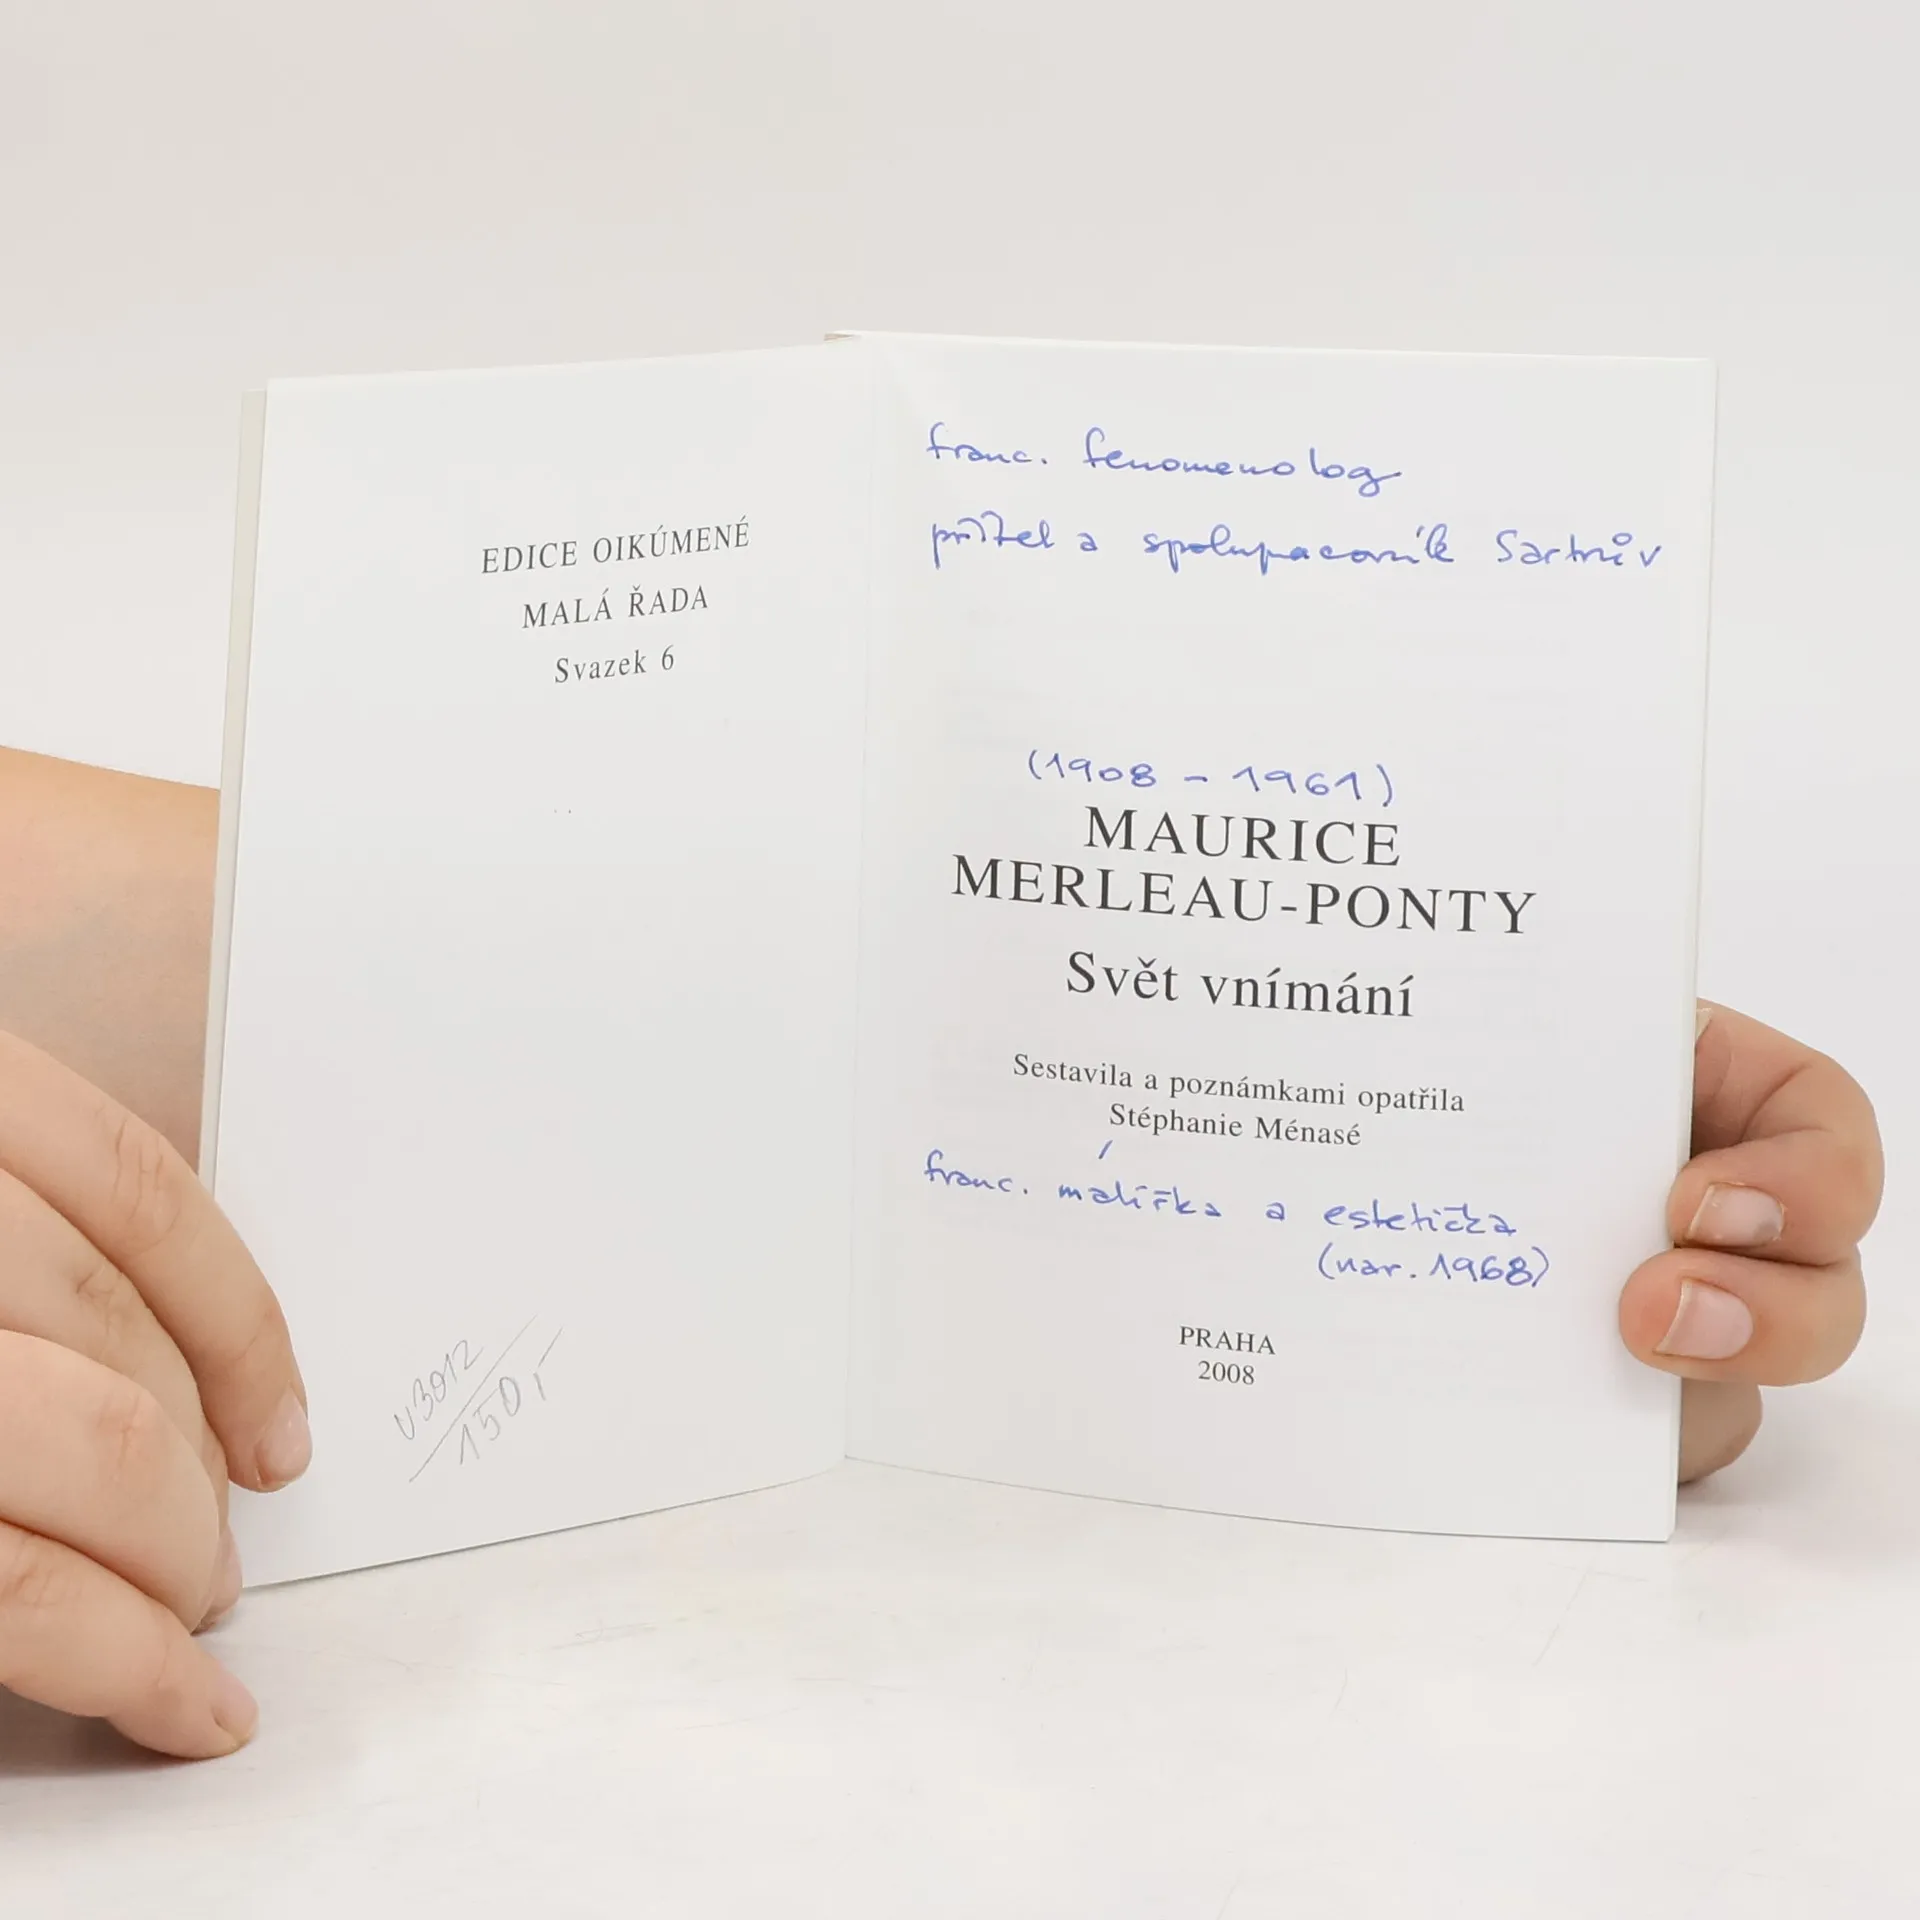 EDICE OIKÚMENÉ
MALÁ ŘADA
Svazek 6
v3012
150,-
franc. fenomenolog
přítel a spolupracovník Sartrův
(1908 - 1961)
MAURICE
MERLEAU-PONTY
Svět vnímání
Sestavila a poznámkami opatřila
Stéphanie Ménasé
franc. malířka a estetička
(nar. 1968)
PRAHA
2008